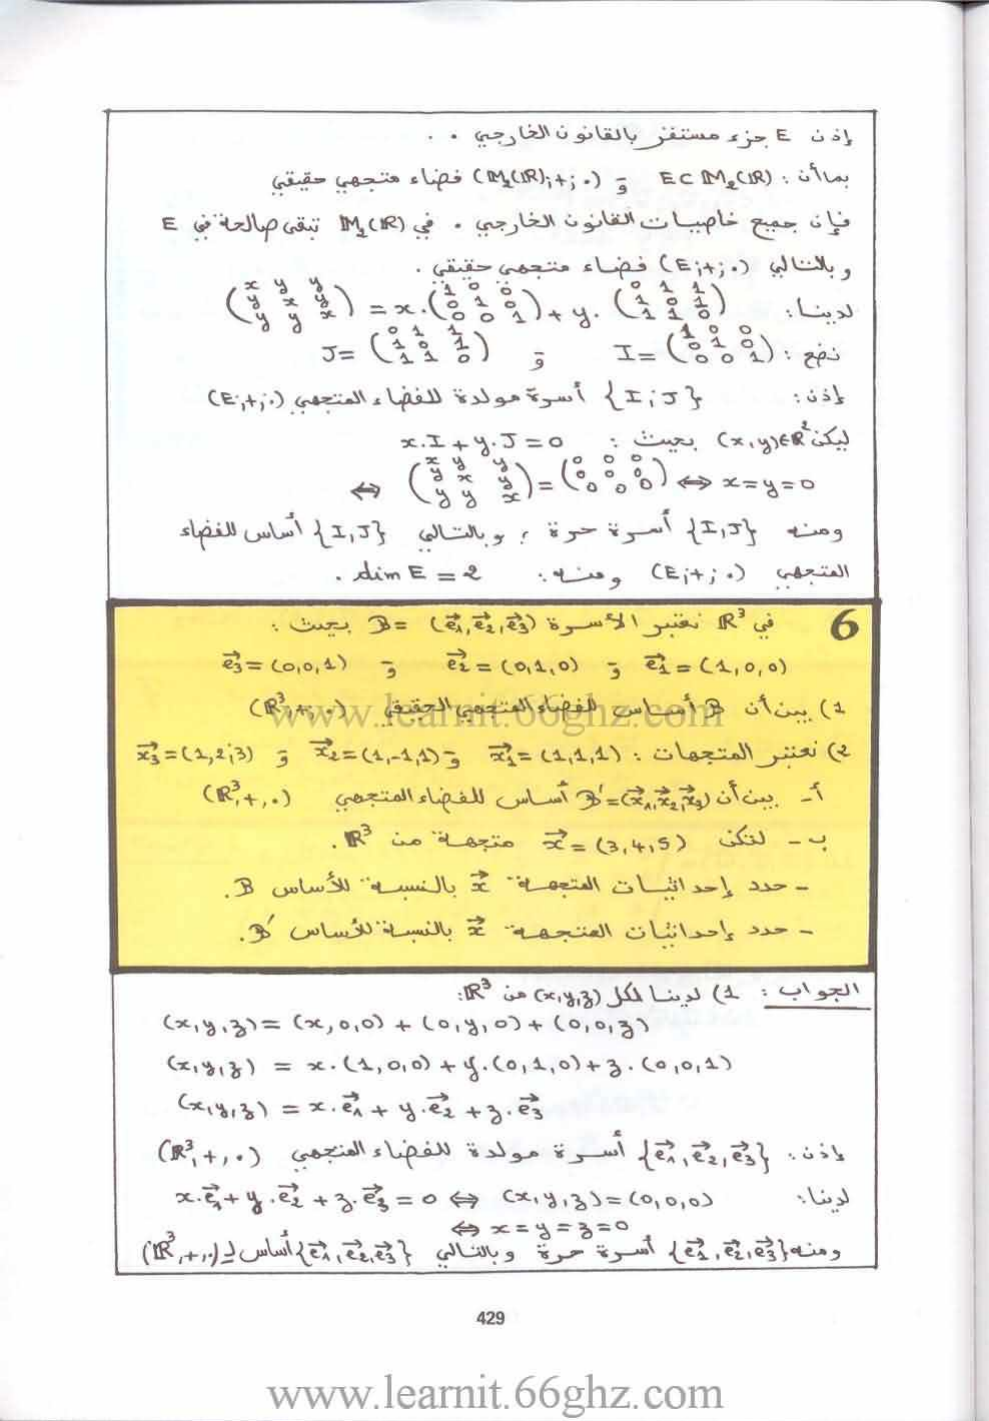 إذن E جزء مستقر بالقانون الخارجي . .
بما أن : E⊂M₂(ℝ) و (M₂(ℝ);+;.) فضاء متجهي حقيقي
فإن جميع خاصيات القانون الخارجي . في M₂(ℝ) تبقى صالحة في E
وبالتالي (E;+;.) فضاء متجهي حقيقي .
لدينا: (x y y / y x y / y y x) = x.(1 0 0 / 0 1 0 / 0 0 1) + y.(0 1 1 / 1 0 1 / 1 1 0)
نضع : I = (1 0 0 / 0 1 0 / 0 0 1) و J = (0 1 1 / 1 0 1 / 1 1 0)
إذن: {I;J} أسرة مولدة للفضاء المتجهي (E;+;.)
ليكن (x,y)∈ℝ² بحيث : x.I + y.J = 0
⇔ (x y y / y x y / y y x) = (0 0 0 / 0 0 0 / 0 0 0) ⇔ x = y = 0
ومنه {I,J} أسرة حرة ; وبالتالي {I,J} أساس للفضاء
المتجهي (E;+;.) ومنه: dim E = 2 .
6 في ℝ³ نعتبر الأسرة B = (e⃗₁,e⃗₂,e⃗₃) بحيث :
e⃗₁ = (1,0,0) و e⃗₂ = (0,1,0) و e⃗₃ = (0,0,1)
1) بين أن B أساس للفضاء المتجهي الحقيقي (ℝ³,+,.)
www.learnit.66ghz.com
2) نعتبر المتجهات : x⃗₁ = (1,1,1) و x⃗₂ = (1,-1,1) و x⃗₃ = (1,2;3)
أ- بين أن B' = (x⃗₁,x⃗₂,x⃗₃) أساس للفضاء المتجهي (ℝ³,+,.)
ب - لتكن x⃗ = (3,4,5) متجهة من ℝ³ .
- حدد إحداثيات المتجهة x⃗ بالنسبة للأساس B.
- حدد إحداثيات المتجهة x⃗ بالنسبة للأساس B'.
الجواب : 1) لدينا لكل (x,y,z) من ℝ³:
(x,y,z) = (x,0,0) + (0,y,0) + (0,0,z)
(x,y,z) = x.(1,0,0) + y.(0,1,0) + z.(0,0,1)
(x,y,z) = x.e⃗₁ + y.e⃗₂ + z.e⃗₃
إذن: {e⃗₁,e⃗₂,e⃗₃} أسرة مولدة للفضاء المتجهي (ℝ³,+,.)
لدينا: x.e⃗₁ + y.e⃗₂ + z.e⃗₃ = 0 ⇔ (x,y,z) = (0,0,0)
⇔ x = y = z = 0
ومنه {e⃗₁,e⃗₂,e⃗₃} أسرة حرة وبالتالي {e⃗₁,e⃗₂,e⃗₃} أساس لـ (ℝ³,+,.)
429
www.learnit.66ghz.com